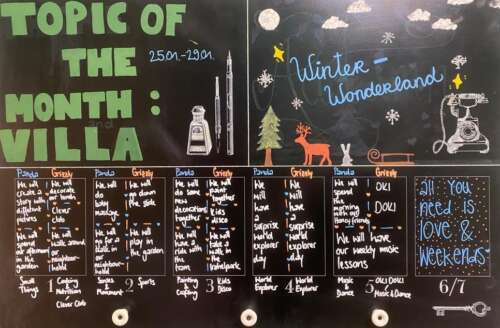 TOPIC OF
THE
MONTH:
VILLA
25.01.-29.01.
Winter-
Wonderland
Panda Grizzly
We will
create a
story with
different
pictures
We will
decorate
our hands
Clever
Club
We will
spend an
afternoon
in the
garden
We will
walk around
our
neighbour
hood
Small
Things
1
Cooking
Nutrition
Clever Club
Panda Grizzly
We will
do a
body
massage
We will
run down
the slide
We will
go for a
walk in
the
neighbour
hood
We will
play in
the garden
Senses
Movement
2
Sports
Panda Grizzly
We will
do some
new
decorations
together
We will
together
Kids
disco
We will
have a
ride with
the
tram
We will
take a
walk to
the
Painting
Crafting
3
Kids
Disco
Panda Grizzly
We
will
have
a
surprise
world
explorer
day
We
will
have
a
surprise
world
explorer
day
World
Explorer
4
World
Explorer
Panda Grizzly
We will
spend
the
morning with
our
friends
OKI
DOKI
We will have
our weekly music
lessons
Music
&
Dance
5
OKI DOKI
Music & Dance
all You
need is
LOVE &
Weekends
6/7